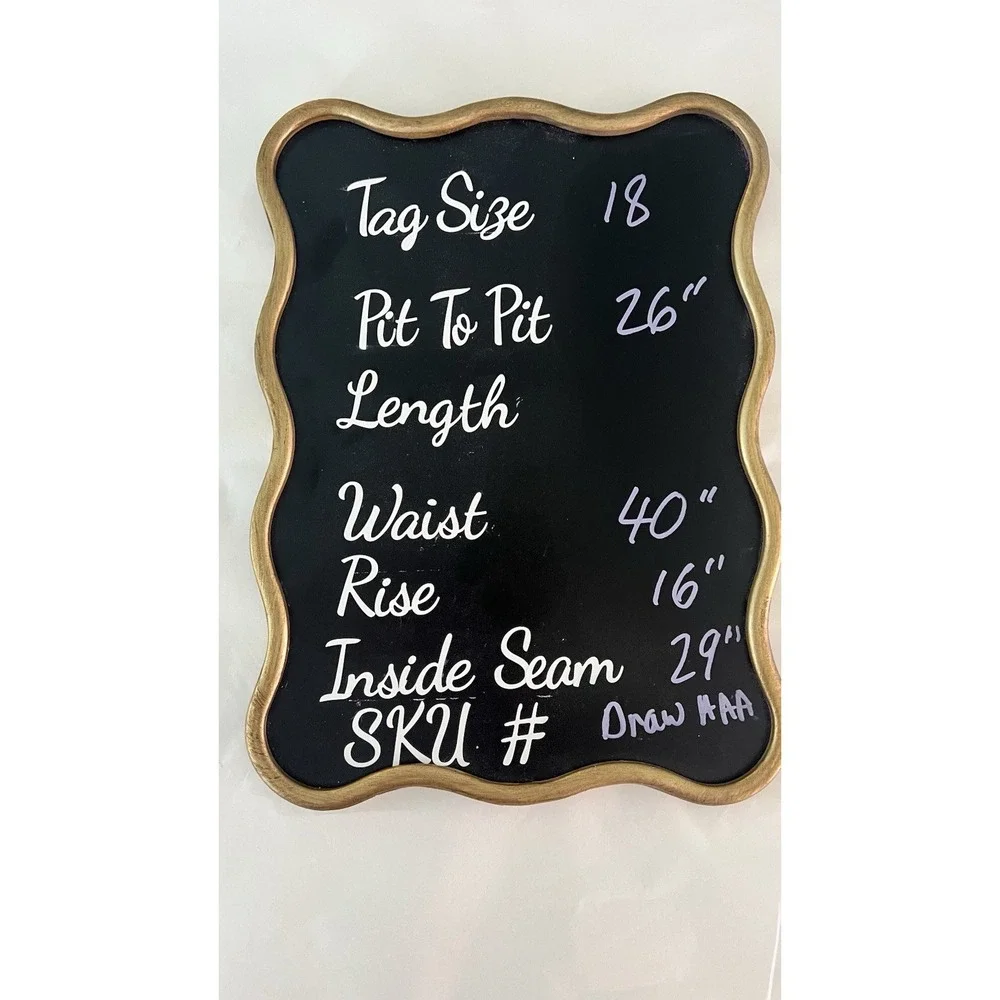 Tag Size 18
Pit To Pit 26"
Length
Waist 40"
Rise 16"
Inside Seam 29"
SKU # Draw AAA